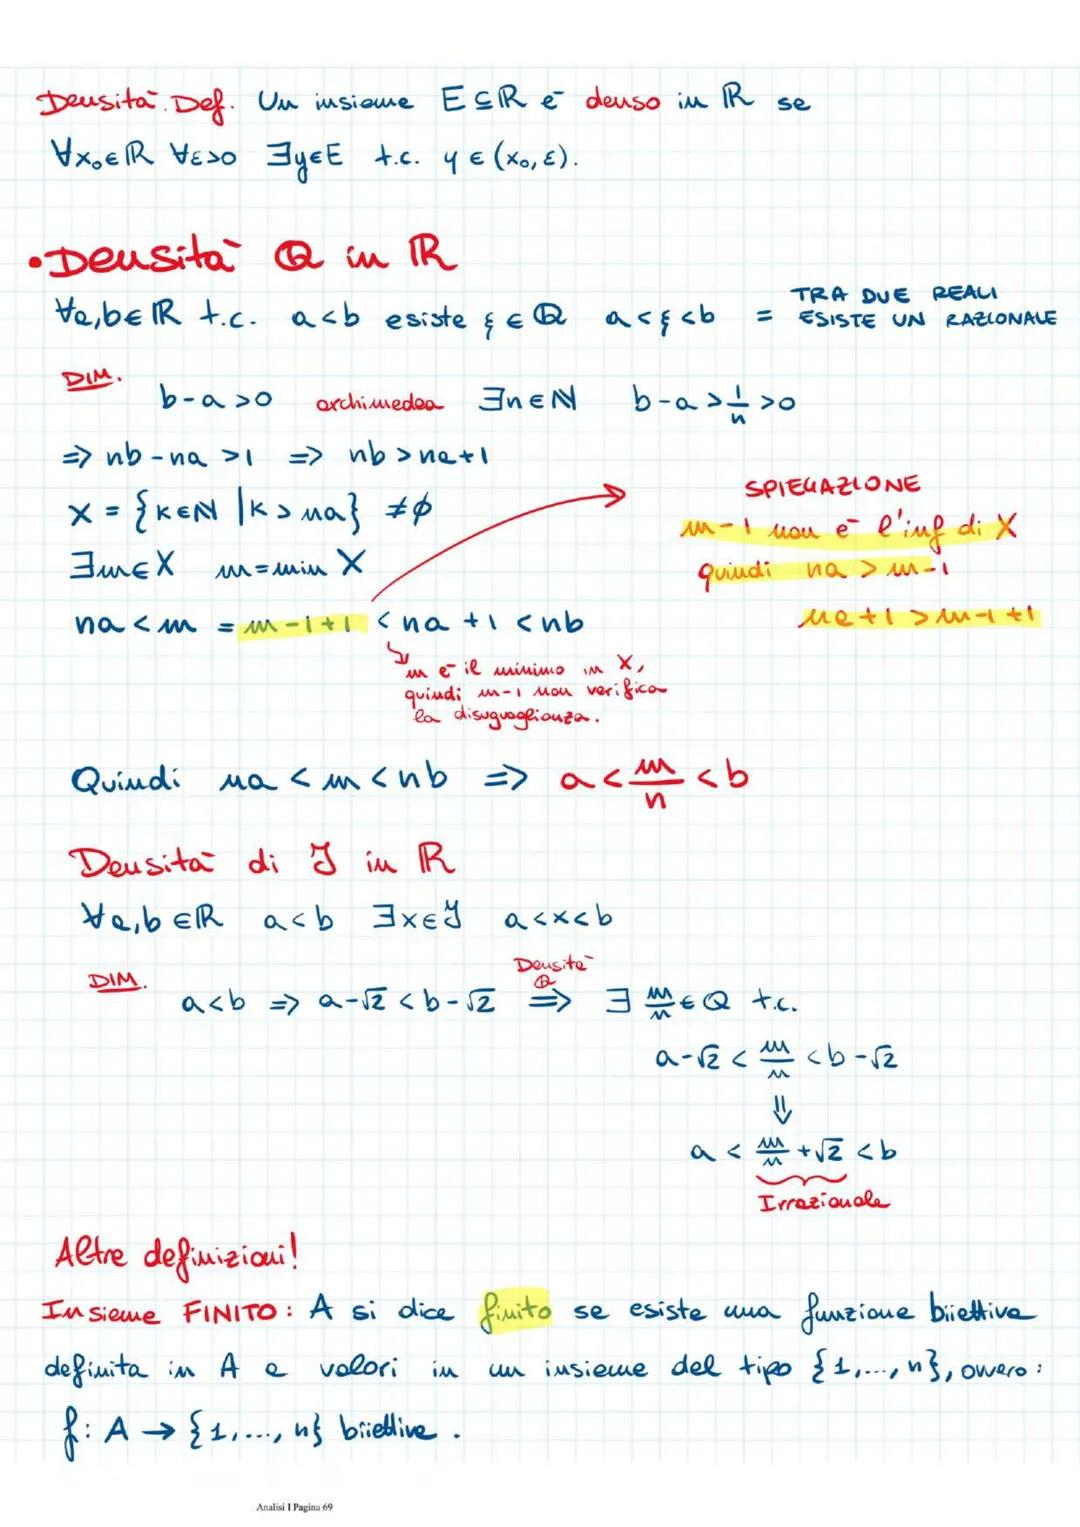 Densità. Def. Un insieme E⊆ℝ è denso in ℝ se
∀x₀∈ℝ ∀ε>0 ∃y∈E t.c. y∈(x₀,ε).
•Densità Q in ℝ
∀a,b∈ℝ t.c. a<b esiste ξ∈Q a<ξ<b = TRA DUE REALI
ESISTE UN RAZIONALE
DIM.
b-a>0 archimedea ∃n∈N b-a>1/n>0
⇒ nb-na>1 ⇒ nb>na+1
X = {K∈N | K>na} ≠∅
∃m∈X m=min X
na<m = m-1+1 <na+1<nb
SPIEGAZIONE
m-1 non è l'inf di X
quindi na>m-1
na+1>m-1+1
m è il minimo in X,
quindi m-1 non verifica
la disuguaglianza.
Quindi na<m<nb ⇒ a<m/n<b
Densità di J in ℝ
∀a,b∈ℝ a<b ∃x∈J a<x<b
DIM.
a<b ⇒ a-√2<b-√2 Densità Q ⇒ ∃ m/n∈Q t.c.
a-√2<m/n<b-√2
⇓
a<m/n+√2<b
Irrazionale
Altre definizioni!
Insieme FINITO: A si dice finito se esiste una funzione biiettiva
definita in A e valori in un insieme del tipo {1,...,n}, ovvero:
f: A → {1,...,n} biiettiva.
Analisi I Pagina 69